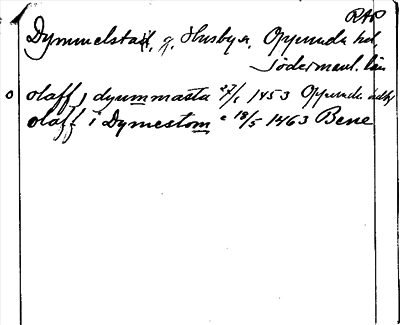 RAP
Dymmelsta, g. Husby s., Oppunda hd,
Södermanl. län
olaff j dyummasta 27/1 1453 Oppunda
olaff i Dymestom 18/5 1463 Bene